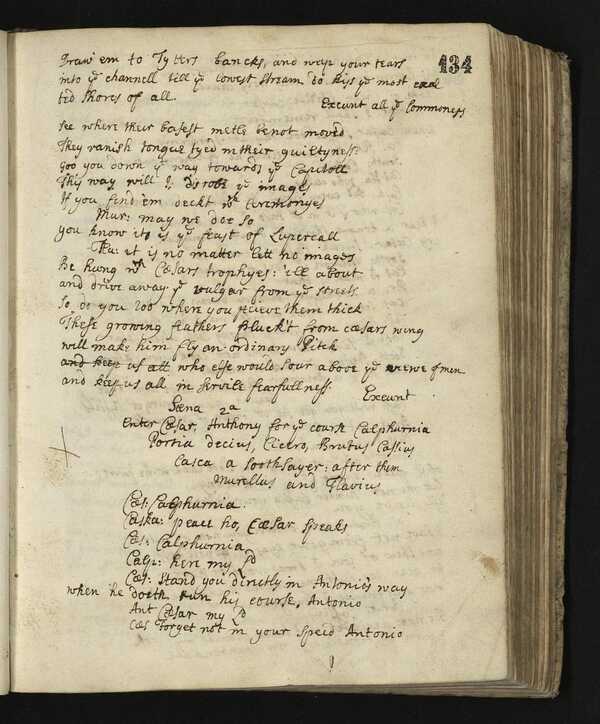 134
Draw em to Tyters bancks, and weep your tears
into yᵉ channell till yᵉ lowest stream do kiss yᵉ most exal
ted shores of all.
Exeunt all yᵉ Commoners
see where their basest metle be not moved
They vanish tongue tyed in their guiltyness
goo you down yᵉ way towards yᵉ Capitoll
This way will I; disrobe yᵉ images
If you find em deckt wᵗʰ Ceremonyes
Mur: may we doe so
you know it is yᵉ feast of Lupercall
Fla: it is no matter lett no images
Be hung wᵗʰ Cæsars trophyes: 'ill about
and drive away yᵉ vulgar from yᵉ streets
So do you too where you perceive them thick
These growing feathers pluck't from cæsars wing
will make him fly an ordinary Pitch
and keep us all who else would soar above yᵉ veiwe of men
and keep us all in servile fearfullness
Exeunt
Scena 2ᵃ
Enter Cæsar, Anthony for yᵉ course Calphurnia
Portia decius, Cicero, Brutus Cassius
Casca a Soothsayer: after them
Murellus and Flavius
Cæs: Calphurnia.
Caska: peace ho, Cæsar speaks
Cæs: Calphurnia
Calp: here my Lᵈ
Cæs: Stand you directly in Antonio's way
when he doeth run his course, Antonio
Ant Cæsar my Lᵈ
Cæs forget not in your speed Antonio